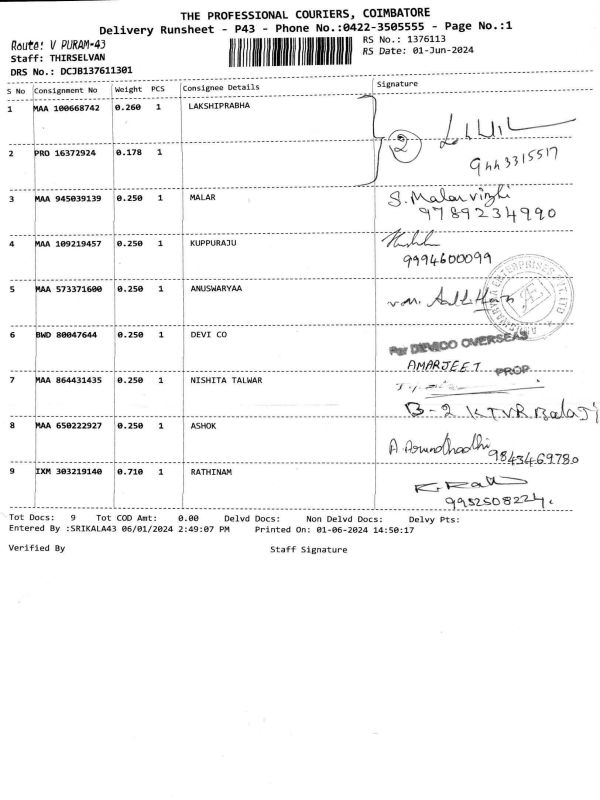 THE PROFESSIONAL COURIERS, COIMBATORE
Delivery Runsheet - P43 - Phone No.:0422-3505555 - Page No.:1
Route: V PURAM-43
RS No.: 1376113
Staff: THIRSELVAN
RS Date: 01-Jun-2024
DRS No.: DCJB137611301
S No Consignment No Weight PCS Consignee Details Signature
1 MAA 100668742 0.260 1 LAKSHIPRABHA
2
2 PRO 16372924 0.178 1
3 MAA 945039139 0.250 1 MALAR S. Malarvizhi
9789234990
4 MAA 109219457 0.250 1 KUPPURAJU
9994600099
5 MAA 573371600 0.250 1 ANUSWARYAA
6 BWD 80047644 0.250 1 DEVI CO For DEVICO OVERSEAS
AMARJEET PROP
7 MAA 864431435 0.250 1 NISHITA TALWAR
B-2 KTVR Balaji
8 MAA 650222927 0.250 1 ASHOK
9843469780
9 IXM 303219140 0.710 1 RATHINAM
Tot Docs: 9 Tot COD Amt: 0.00 Delvd Docs: Non Delvd Docs: Delvy Pts:
Entered By :SRIKALA43 06/01/2024 2:49:07 PM Printed On: 01-06-2024 14:50:17
Verified By Staff Signature